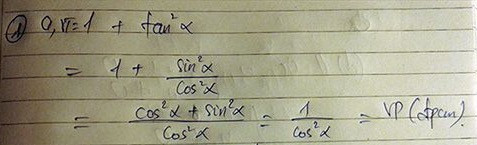 ① a, VT = 1 + tan²α
= 1 + sin²α / cos²α
= (cos²α + sin²α) / cos²α = 1 / cos²α = VP (đpcm)